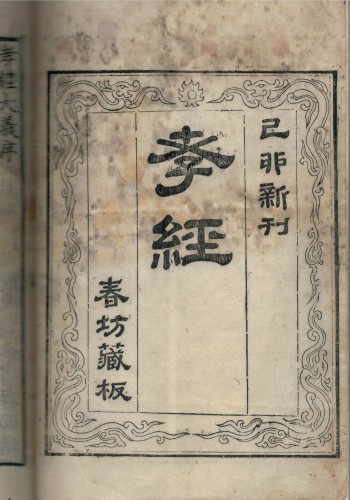 己卯新刊
孝經
春坊藏板
孝經大義序